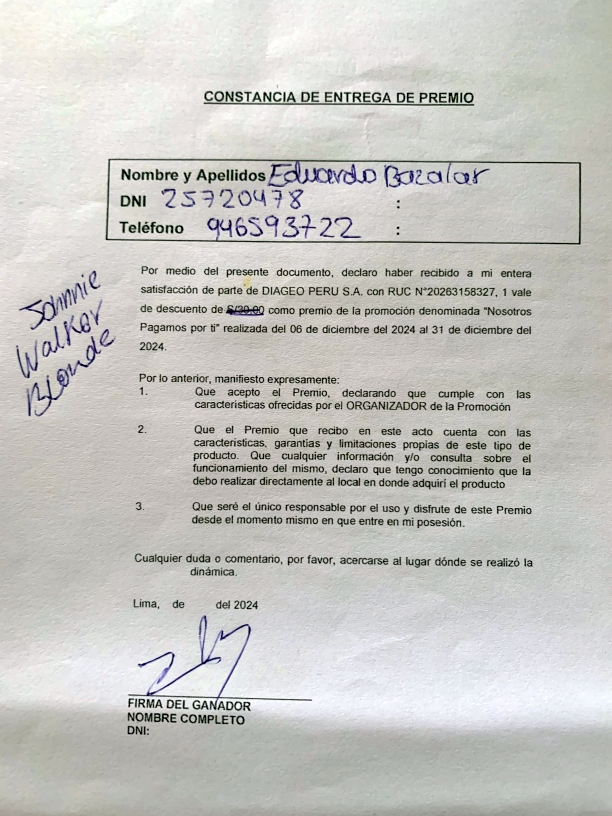 CONSTANCIA DE ENTREGA DE PREMIO
Nombre y Apellidos Eduardo Bazalar
DNI 25720478 :
Teléfono 946593722 :
Johnnie
Walker
Blonde
Por medio del presente documento, declaro haber recibido a mi entera
satisfacción de parte de DIAGEO PERU S.A. con RUC N°20263158327, 1 vale
de descuento de S/30.00 como premio de la promoción denominada "Nosotros
Pagamos por ti" realizada del 06 de diciembre del 2024 al 31 de diciembre del
2024.
Por lo anterior, manifiesto expresamente:
1. Que acepto el Premio, declarando que cumple con las
características ofrecidas por el ORGANIZADOR de la Promoción
2. Que el Premio que recibo en este acto cuenta con las
características, garantías y limitaciones propias de este tipo de
producto. Que cualquier información y/o consulta sobre el
funcionamiento del mismo, declaro que tengo conocimiento que la
debo realizar directamente al local en donde adquirí el producto
3. Que seré el único responsable por el uso y disfrute de este Premio
desde el momento mismo en que entre en mi posesión.
Cualquier duda o comentario, por favor, acercarse al lugar dónde se realizó la
dinámica.
Lima, de del 2024
FIRMA DEL GANADOR
NOMBRE COMPLETO
DNI: